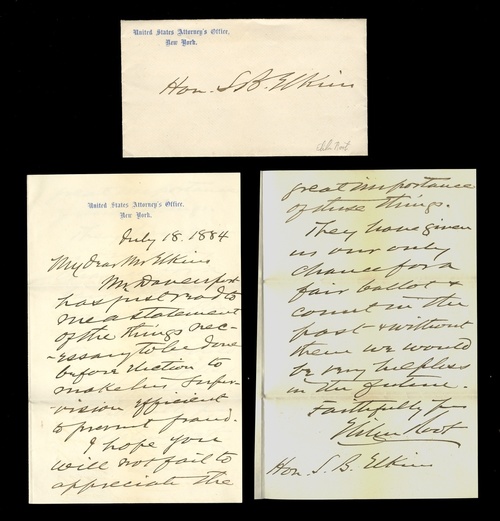 United States Attorney's Office,
New York.
Hon. S. B. Elkins
Elihu Root.
United States Attorney's Office,
New York.
July 18. 1884
My dear Mr Elkins
Mr Davenport
has just read to
me a statement
of the things nec-
essary to be done
before election to
make his super-
vision efficient
to prevent fraud.
I hope you
will not fail to
appreciate the
great importance
of these things.
They have given
us our only
chance for a
fair ballot &
count in the
past & without
them we would
be very helpless
in the future.
Faithfully yrs
Elihu Root
Hon. S. B. Elkins